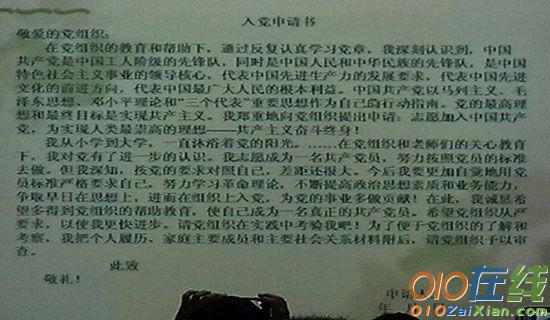 入党申请书
敬爱的党组织:
在党组织的教育和帮助下，通过反复认真学习党章，我深刻认识到，中国
共产党是中国工人阶级的先锋队，同时是中国人民和中华民族的先锋队，是中国
特色社会主义事业的领导核心，代表中国先进生产力的发展要求，代表中国先进
文化的前进方向，代表中国最广大人民的根本利益。中国共产党以马列主义、毛
泽东思想、邓小平理论和“三个代表”重要思想作为自己的行动指南。党的最高理
想和最终目标是实现共产主义。我郑重地向党组织提出申请：志愿加入中国共产
党，为实现人类最崇高的理想——共产主义奋斗终身！
我从小学到大学，一直沐浴着党的阳光。……在党组织和老师们的关心教育
下，我对党有了进一步的认识。我志愿成为一名共产党员，努力按照党员的标准
去做。但我深知，按党的要求对照自己，差距还很大。今后我要更加自觉地用党
员标准严格要求自己。努力学习革命理论，不断提高政治思想素质和业务能力，
争取早日在思想上，进而在组织上入党，为党的事业多做贡献！在此，我诚恳希
望多得到党组织的帮助教育，使自己成为一名真正的共产党员。希望党组织从严
要求，以使我更快进步。请党组织在实践中考验我吧！为了便于党组织的了解和
考察，我把个人履历、家庭主要成员和主要社会关系材料附后，请党组织予以审
查。
此致
敬礼！
申请
年
010在线
010ZaiXian.com